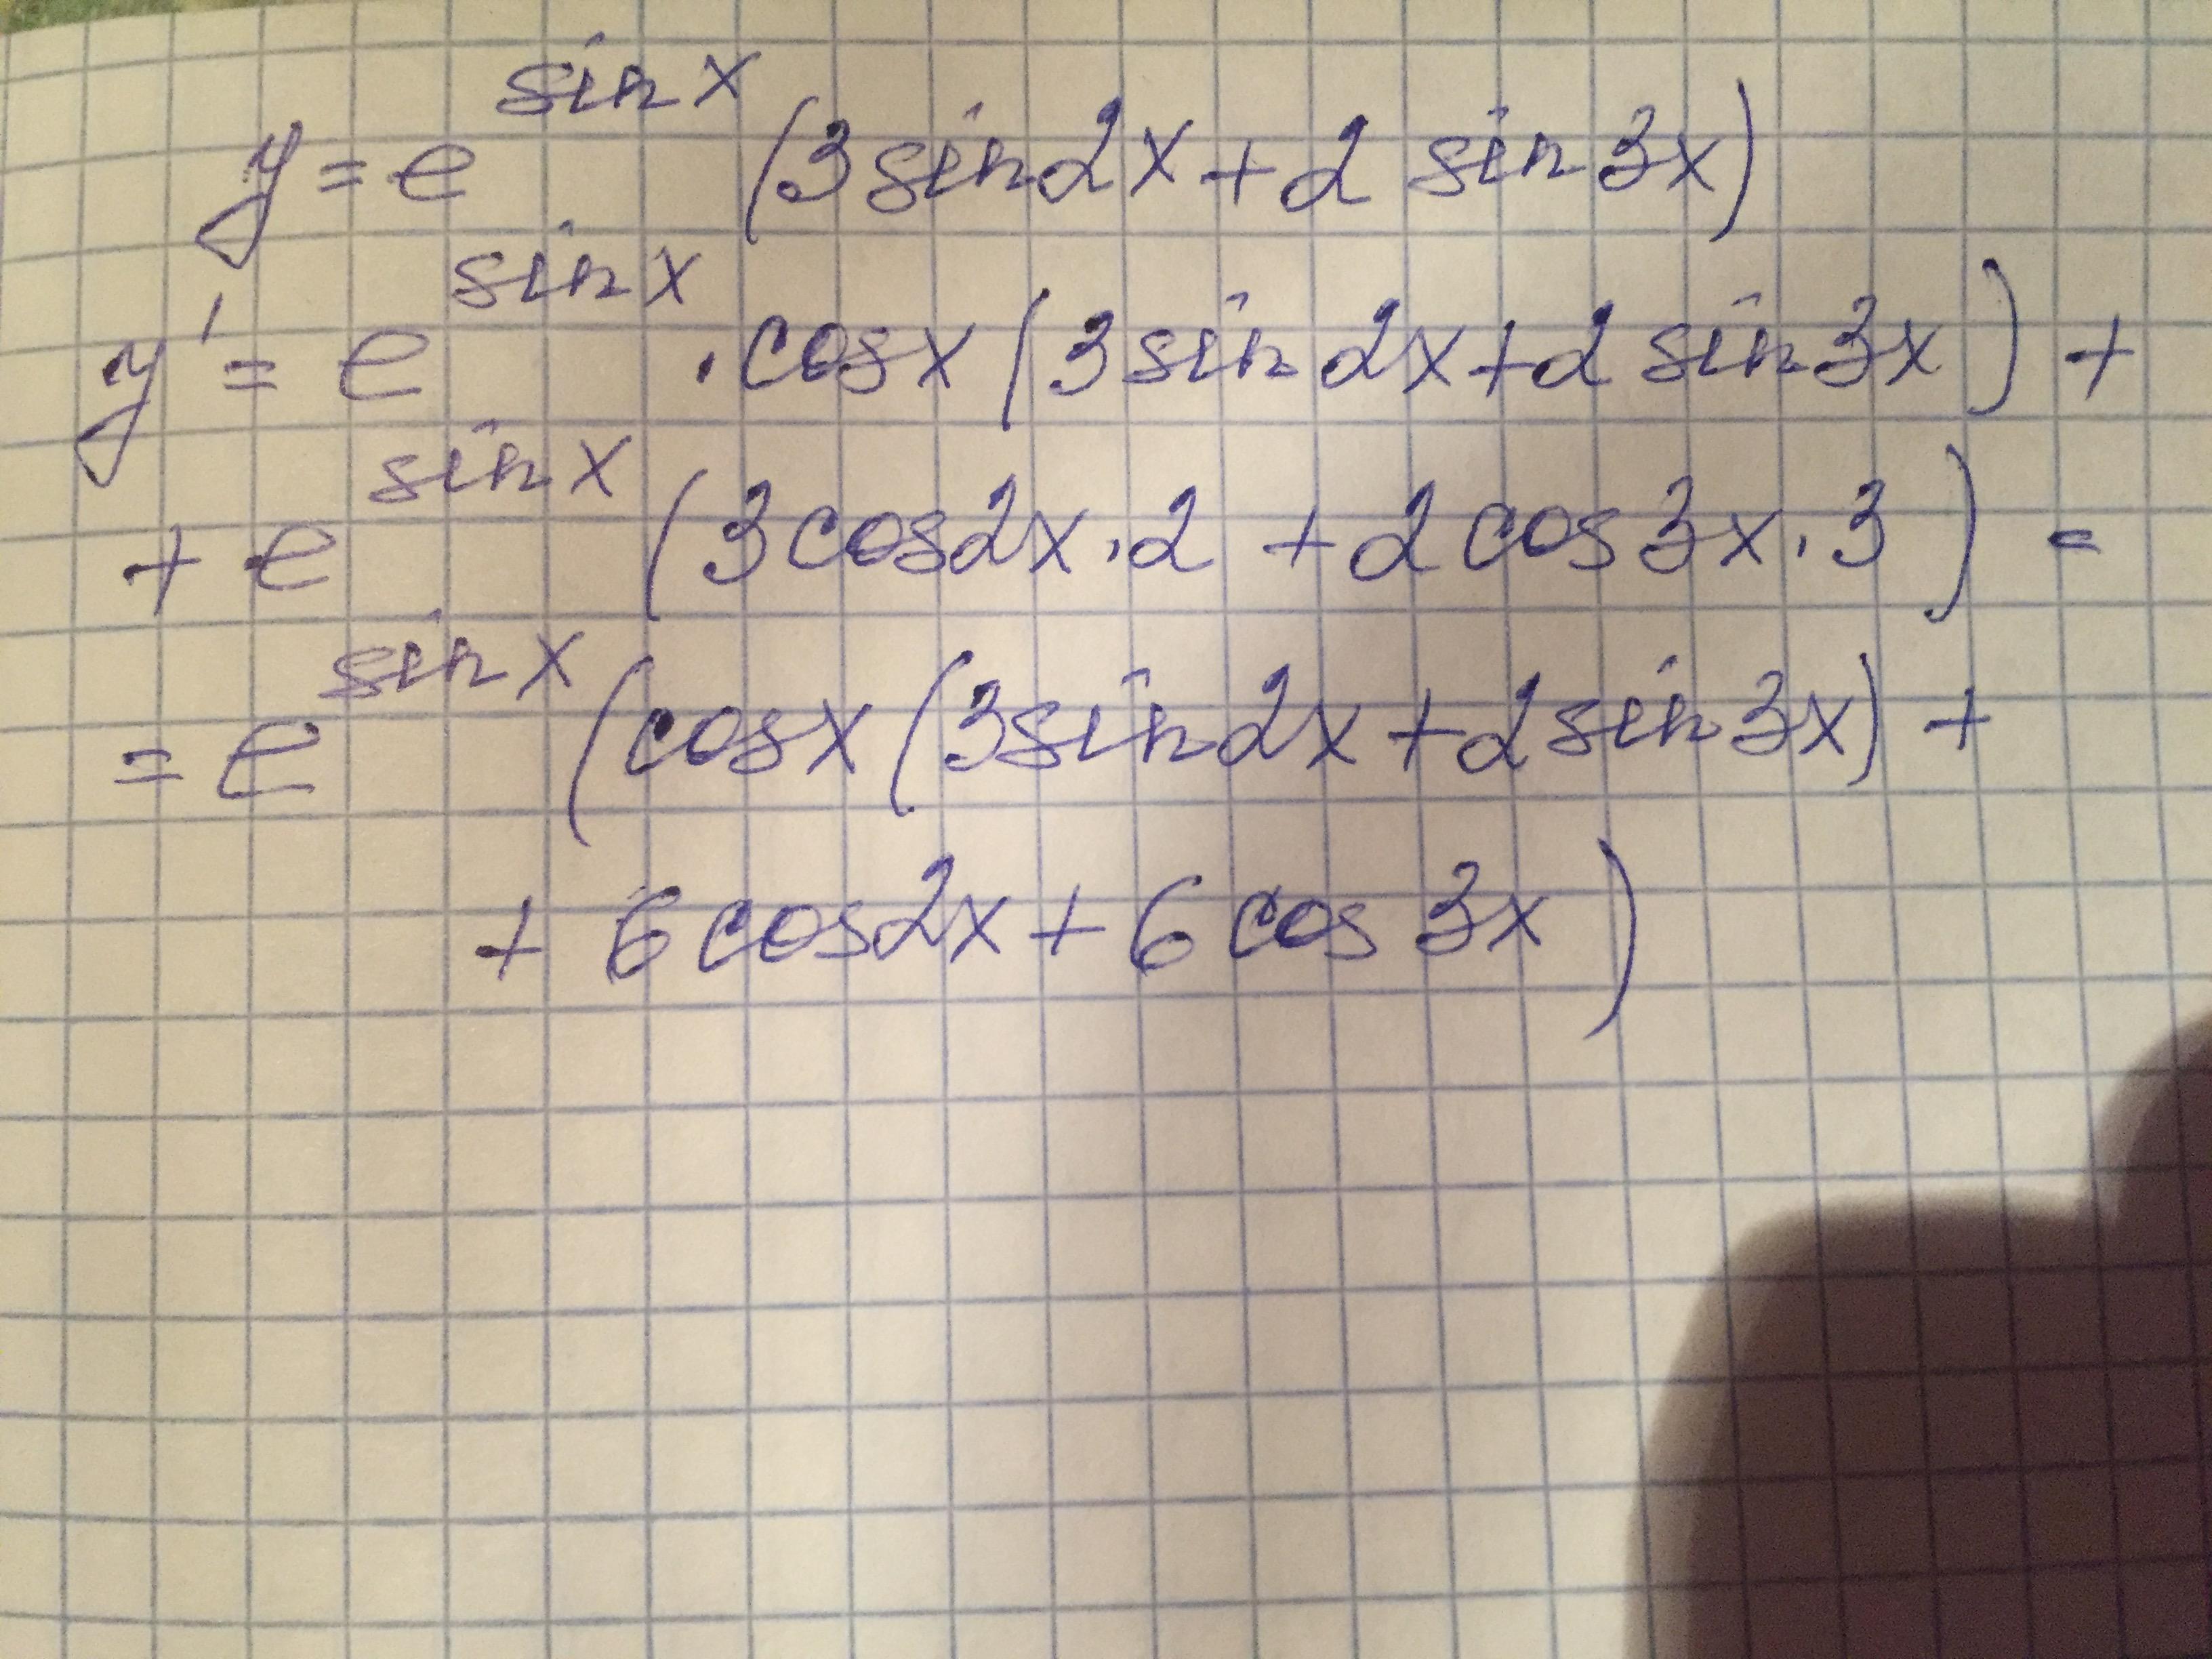 y = e^{sin x} (3 sin 2x + 2 sin 3x)
y' = e^{sin x} · cos x (3 sin 2x + 2 sin 3x) +
+ e^{sin x} (3 cos 2x · 2 + 2 cos 3x · 3) =
= e^{sin x} (cos x (3 sin 2x + 2 sin 3x) +
+ 6 cos 2x + 6 cos 3x)